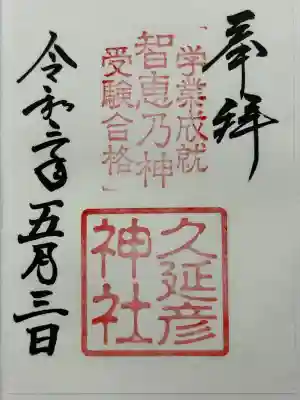 奉拝
「学業成就
智恵乃神
受験合格」
久延彦
神社
令和二年五月三日